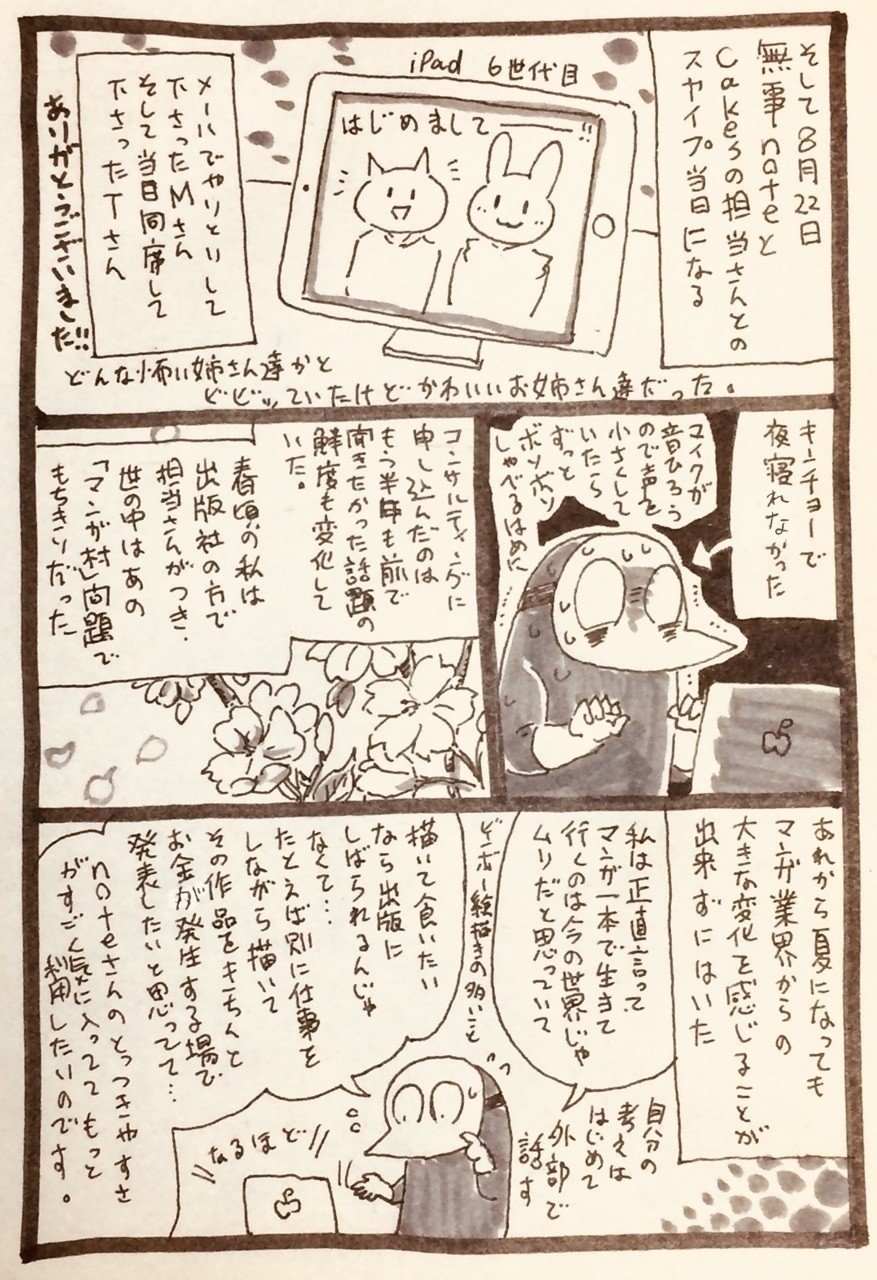 そして8月22日
無事noteと
Cakesの担当さんとの
スカイプ当日になる
iPad 6世代目
はじめまして――!!
メールでやりとりして
下さったMさん
そして当日同席して
下さったTさん
ありがとうございました!!
どんな怖い姉さん達かと
ビビッていたけどかわいいお姉さん達だった。
キンチョーで
夜寝れなかった
マイクが
音ひろう
ので声を
小さくして
いたら
ずっと
ボソボソ
しゃべるはめに
コンサルティングに
申し込んだのは
もう半年も前で
聞きたかった話題の
鮮度も変化して
いた。
春頃の私は
出版社の方で
担当さんがつき、
世の中はあの
「マンガ村」問題で
もちきりだった
あれから夏になっても
マンガ業界からの
大きな変化を感じることが
出来ずにはいた
私は正直言って
マンガ一本で生きて
行くのは今の世界じゃ
ムリだと思っていて
ビンボー絵描きの多いこと
描いて食いたい
なら出版に
しばられるんじゃ
なくて…
たとえば別に仕事を
しながら描いて
その作品をきちんと
お金が発生する場で
発表したいと思ってて…
noteさんのとっつきやすさ
がすごく気に入っててもっと
利用したいのです。
自分の
考えは
はじめて
外部で
話す
なるほど